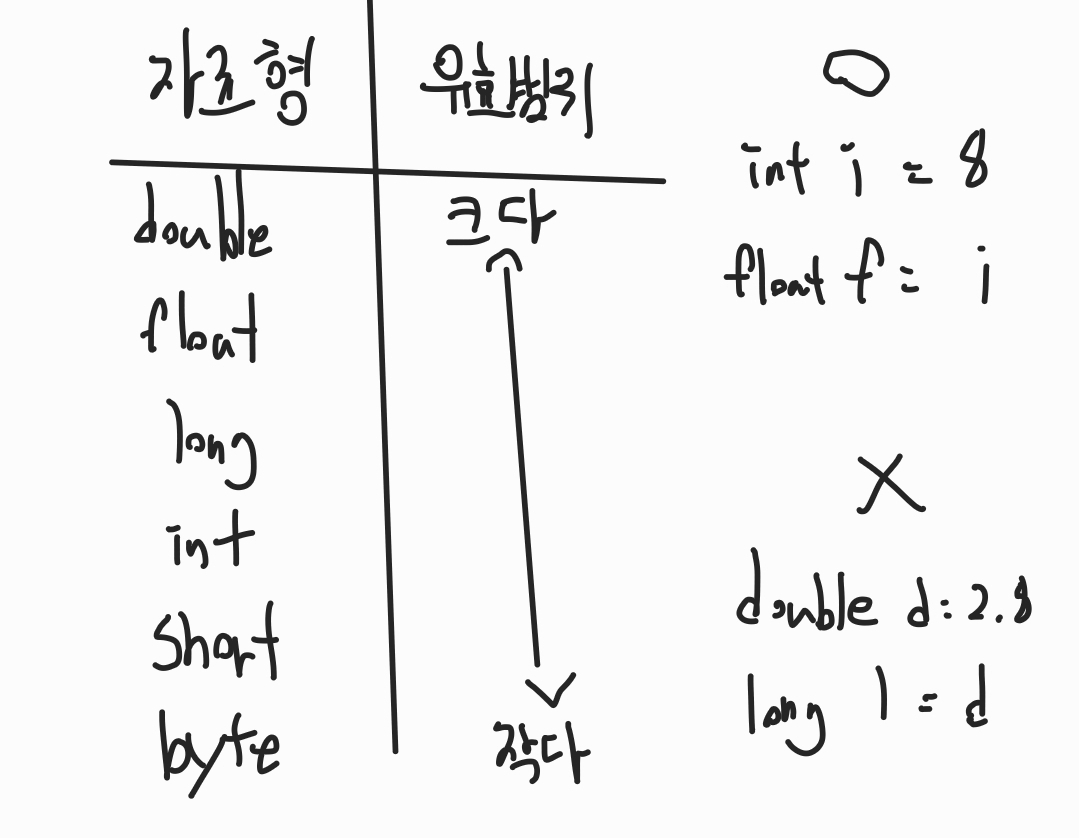 자료형 유효범위
double 크다
float
long
int
short
byte 작다
O
int i = 8
float f = i
X
double d = 2.8
long l = d